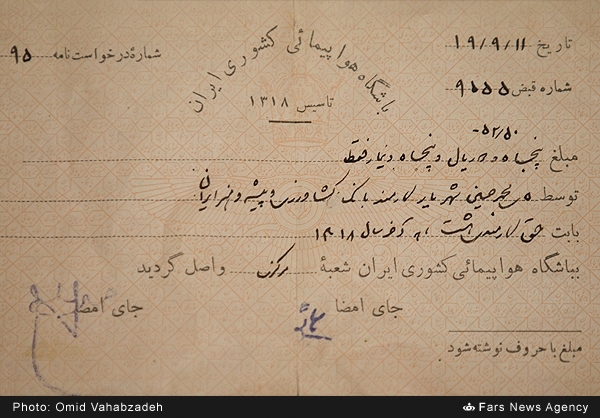 باشگاه هواپیمائی کشوری ایران
تاسیس ۱۳۱۸
تاریخ ۱۹/۹/۱۱
شمارهٔ درخواست نامه ۹۵
شماره قبض ۹۵۵۵
۵۲/۵۰-
مبلغ پنجاه و دو ریال و پنجاه دینار فقط
توسط محمد حسین شهریار کارمند بانک کشاورزی و پیشه و هنر ایران
بابت حق کارمندی هشت ماه آخر سال ۱۳۱۸
بباشگاه هواپیمائی کشوری ایران شعبهٔ مرکزی واصل گردید
جای امضا جای امضا
مبلغ با حروف نوشته شود
Photo: Omid Vahabzadeh
Fars News Agency